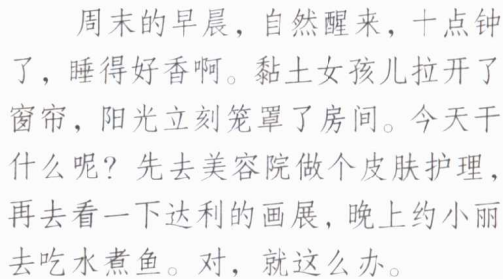 周末的早晨，自然醒来，十点钟
了，睡得好香啊。黏土女孩儿拉开了
窗帘，阳光立刻笼罩了房间。今天干
什么呢？先去美容院做个皮肤护理，
再去看一下达利的画展，晚上约小丽
去吃水煮鱼。对，就这么办。